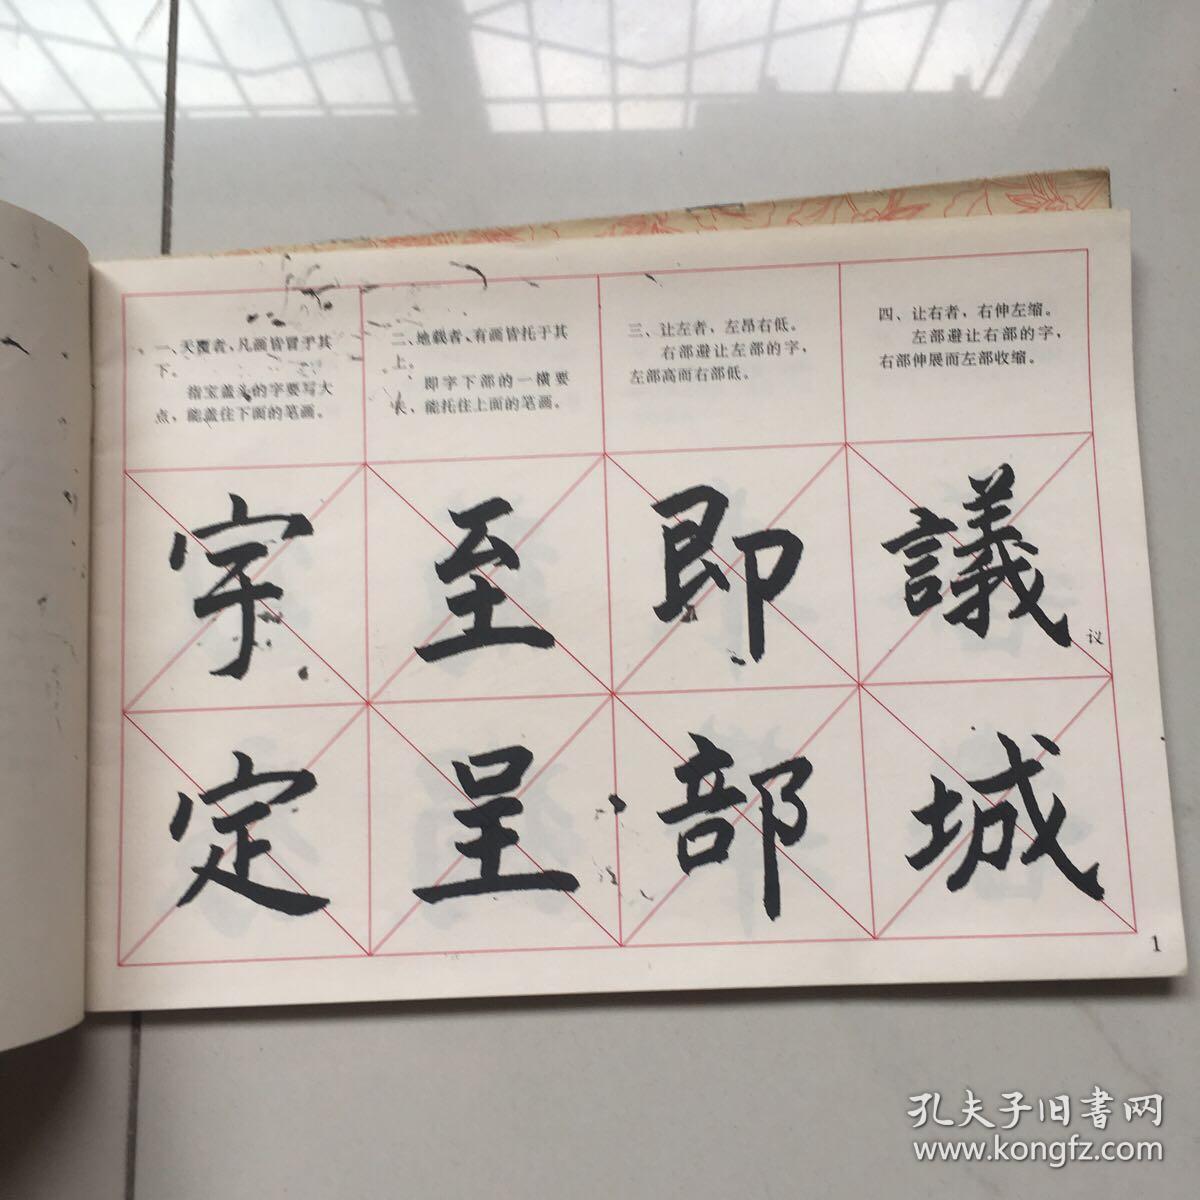 一、天覆者，凡画皆冒于其
下。
指宝盖头的字要写大
点，能盖住下面的笔画。
二、地载者，有画皆托于其
上。
即字下部的一横要
长，能托住上面的笔画。
三、让左者，左昂右低。
右部避让左部的字，
左部高而右部低。
四、让右者，右伸左缩。
左部避让右部的字，
右部伸展而左部收缩。
字 至 即 議
议
定 呈 部 城
1
孔夫子旧书网
www.kongfz.com